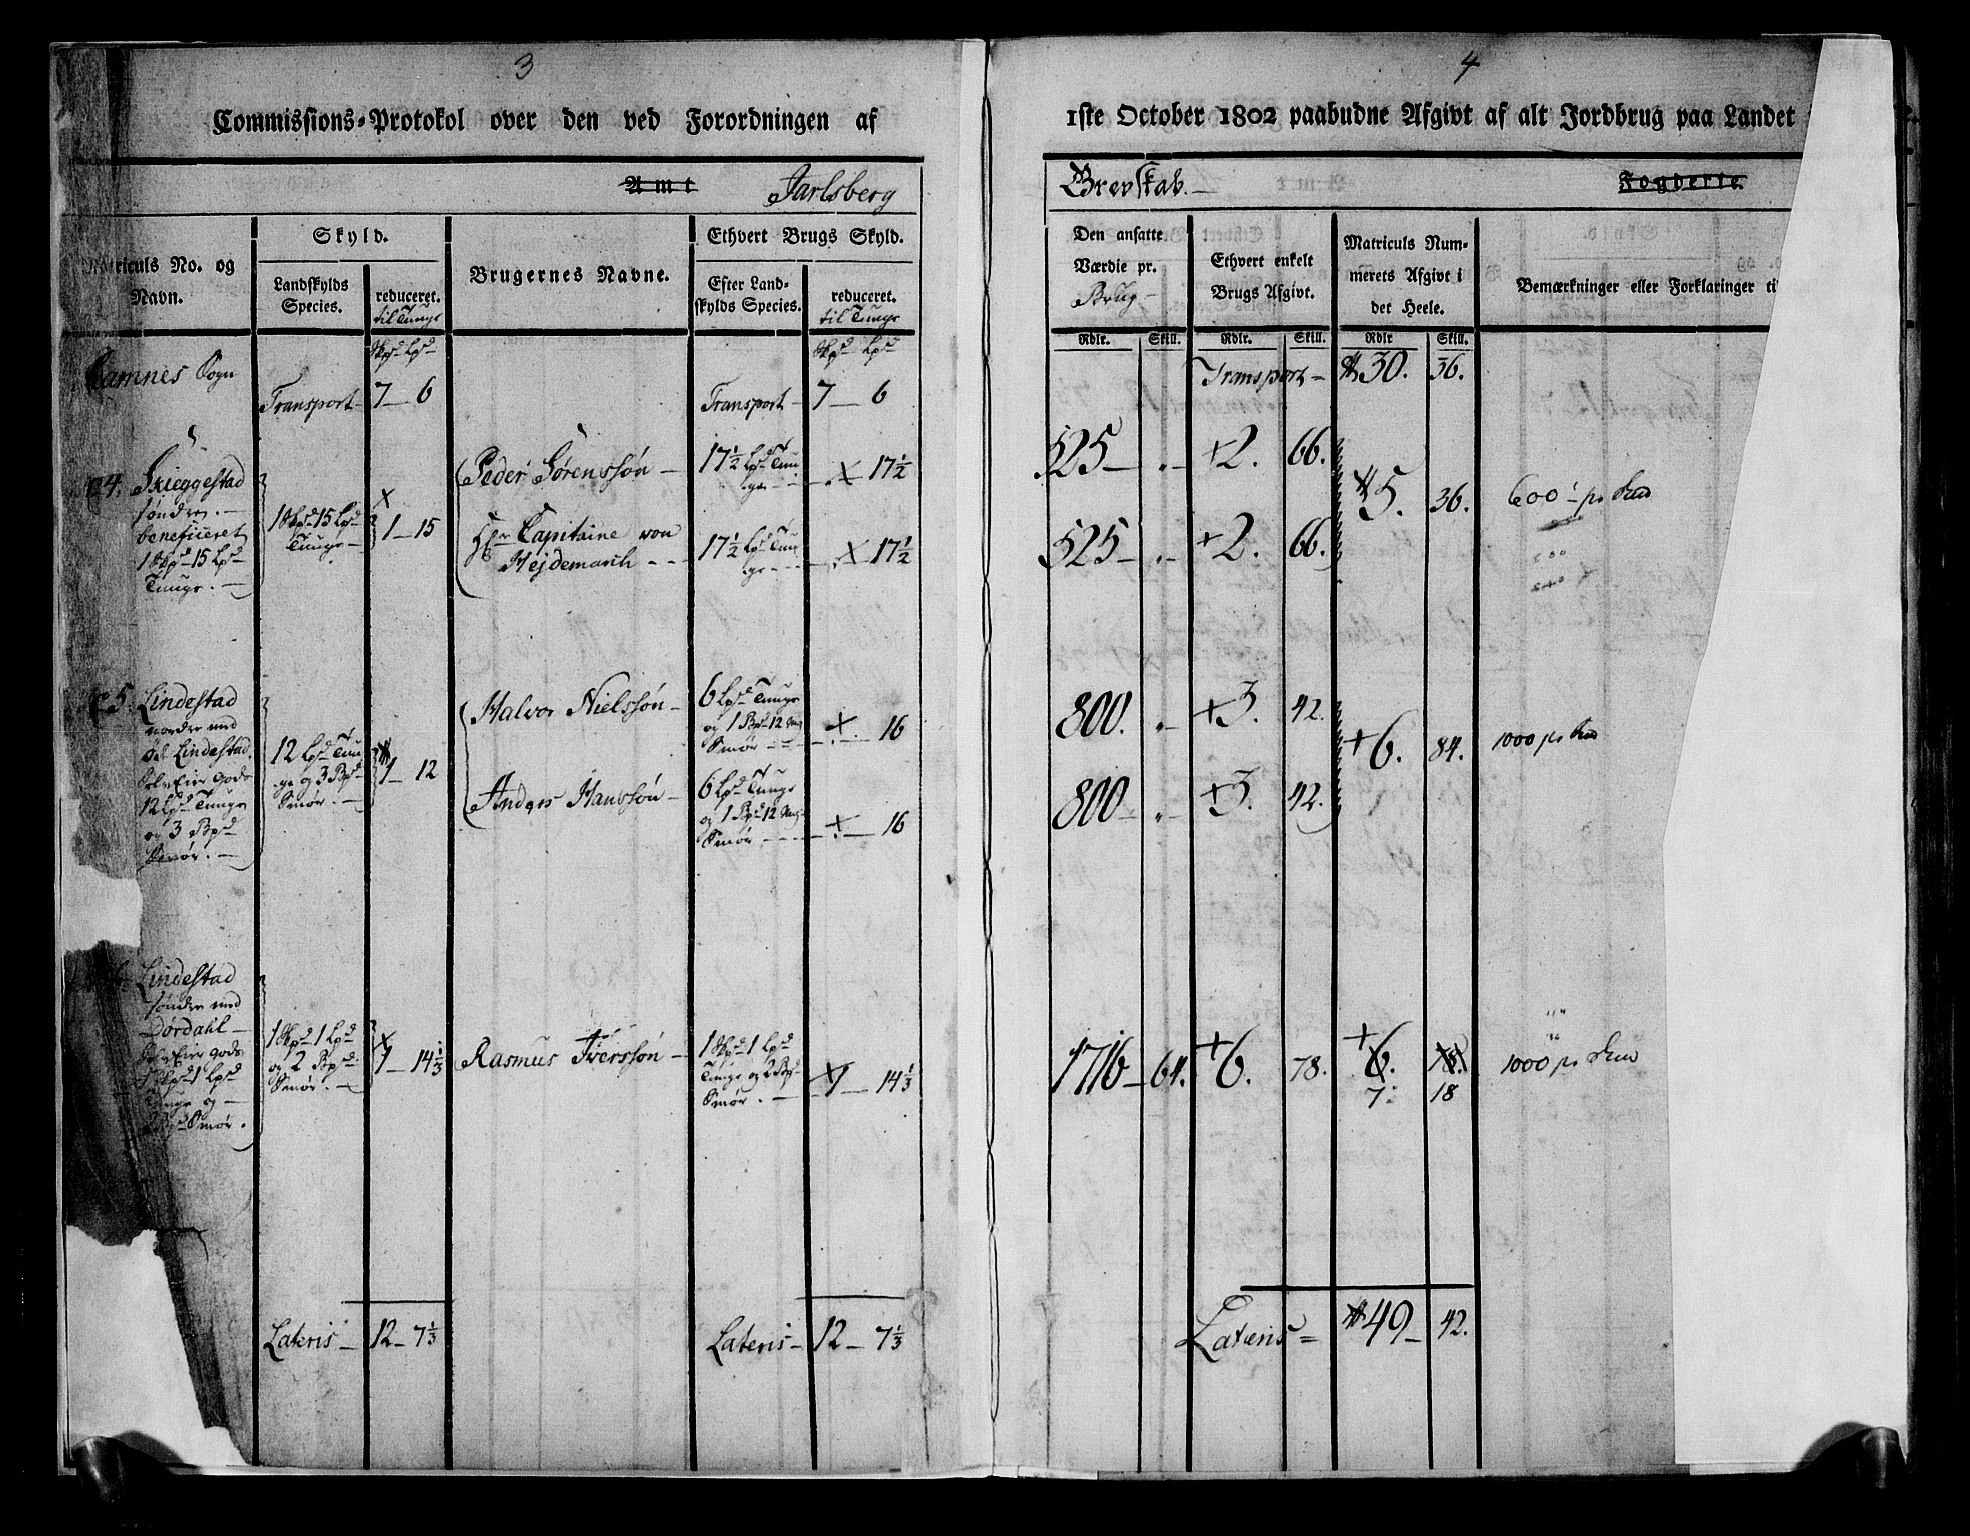 3
Commissions-Protokol over den ved Forordningen af
Amt Jarlsberg
Matriculs No. og Navn.
Skyld.
Landskylds Species.
reduceret. til Tunge
Brugernes Navne.
Ethvert Brugs Skyld.
Efter Landskylds Species.
reduceret. til Tunge
Ramnes Sogn
Skpd Lpd
Skpd Lpd
Transport 7 — 6
Transport — 7 — 6
4. Skieggestad
søndre. —
beneficeret
1 Skpd 15 Lpd
Tunge. —
1 Skpd 15 Lpd
Tunge —
1 — 15
Peder Sørenssøn —
17½ Lpd Tun
ge — —
17½
Hr Capitaine von
Hejdemarck — —
17½ Lpd Tun
ge — —
17½
5. Lindestad
nordre med
Lindestad.
Selv Eier Gods
12 Lpd Tunge
og 3 Bpd
Smør. —
12 Lpd Tun
ge og 3 Bpd
Smør. —
1 — 12
Halvor Nielssøn —
6 Lpd Tunge
og 1 Bpd 12 Mrk
Smør — —
16
Anders Hanssøn —
6 Lpd Tunge
og 1 Bpd 12 Mrk
Smør — —
16
Lindestad
søndre med
Dørdahl —
Selv Eier Gods
1 Skpd 1 Lpd
Tunge og —
2 Bpd Smør.
1 Skpd 1 Lpd
og 2 Bpd
Smør. —
1 — 14⅓
Rasmus Iverssøn —
1 Skpd 1 Lpd
Tunge og 2 Bpd
Smør. —
1 — 14⅓
Lateris — 12 — 7⅓
Lateris — 12 — 7⅓
4
1ste October 1802 paabudne Afgivt af alt Jordbrug paa Landet
Grevskab. —
Fogderie.
Den ansatte Værdie pr. Brug —
Ethvert enkelt Brugs Afgivt.
Matriculs Nummerets Afgivt i det Heele.
Bemærkninger eller Forklaringer ti
Rdlr. Skill. Rdlr. Skill. Rdlr Skill.
Transport — 30. 36.
525 — „ — 2. 66.
5. 36. 600 — pr Skd
525 — „ — 2. 66.
800. „ — 3. 42.
6. 84. 1000 pr Skd
800 — „ — 3. 42.
1716 — 64. 6. 78. 6. 78. 1000 pr Skd
7. 18
Lateris = 49 — 42.